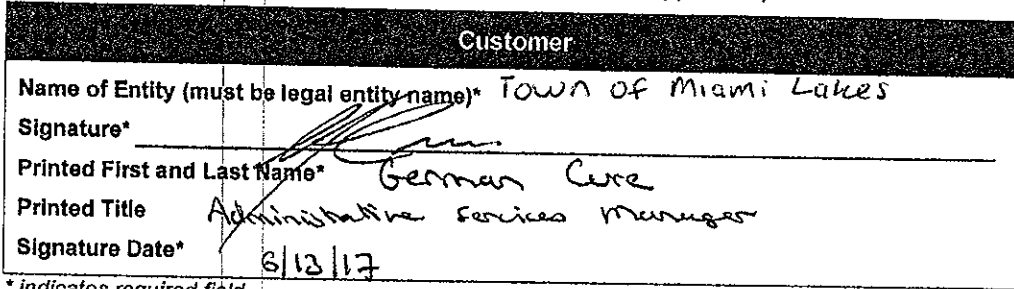 Customer
Name of Entity (must be legal entity name)* Town of Miami Lakes
Signature*
Printed First and Last Name* German Cure
Printed Title Administrative Services Manager
Signature Date* 6/13/17
* indicates required field